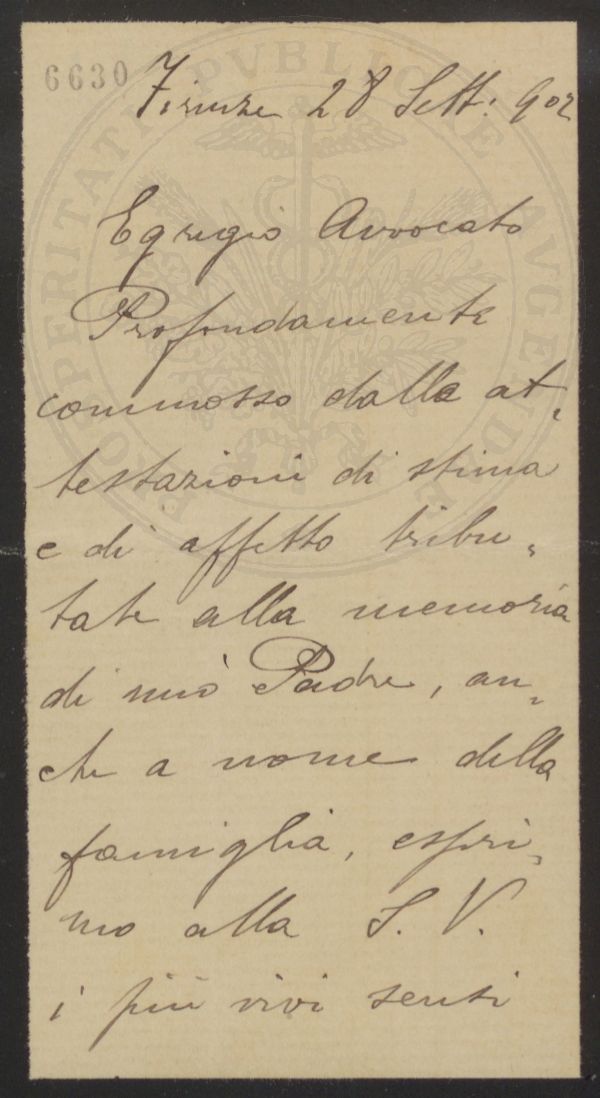 6630
Firenze 28 Sett: 902
Egregio Avvocato
Profondamente
commosso dalle at-
testazioni di stima
e di affetto tribu-
tate alla memoria
di mio Padre, an-
che a nome della
famiglia, espri-
mo alla S. V.
i più vivi senti
PROSPERITATI PVBLICAE AVGENDAE